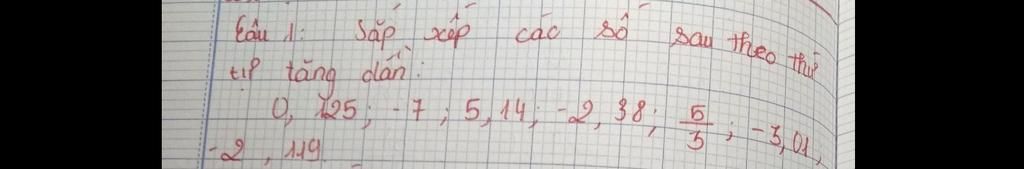 Câu 1: Sắp xếp các số sau theo thứ
tự tăng dần:
0, 125; -7; 5, 14; -2, 38; 5/3; -3,01,
-2, 119